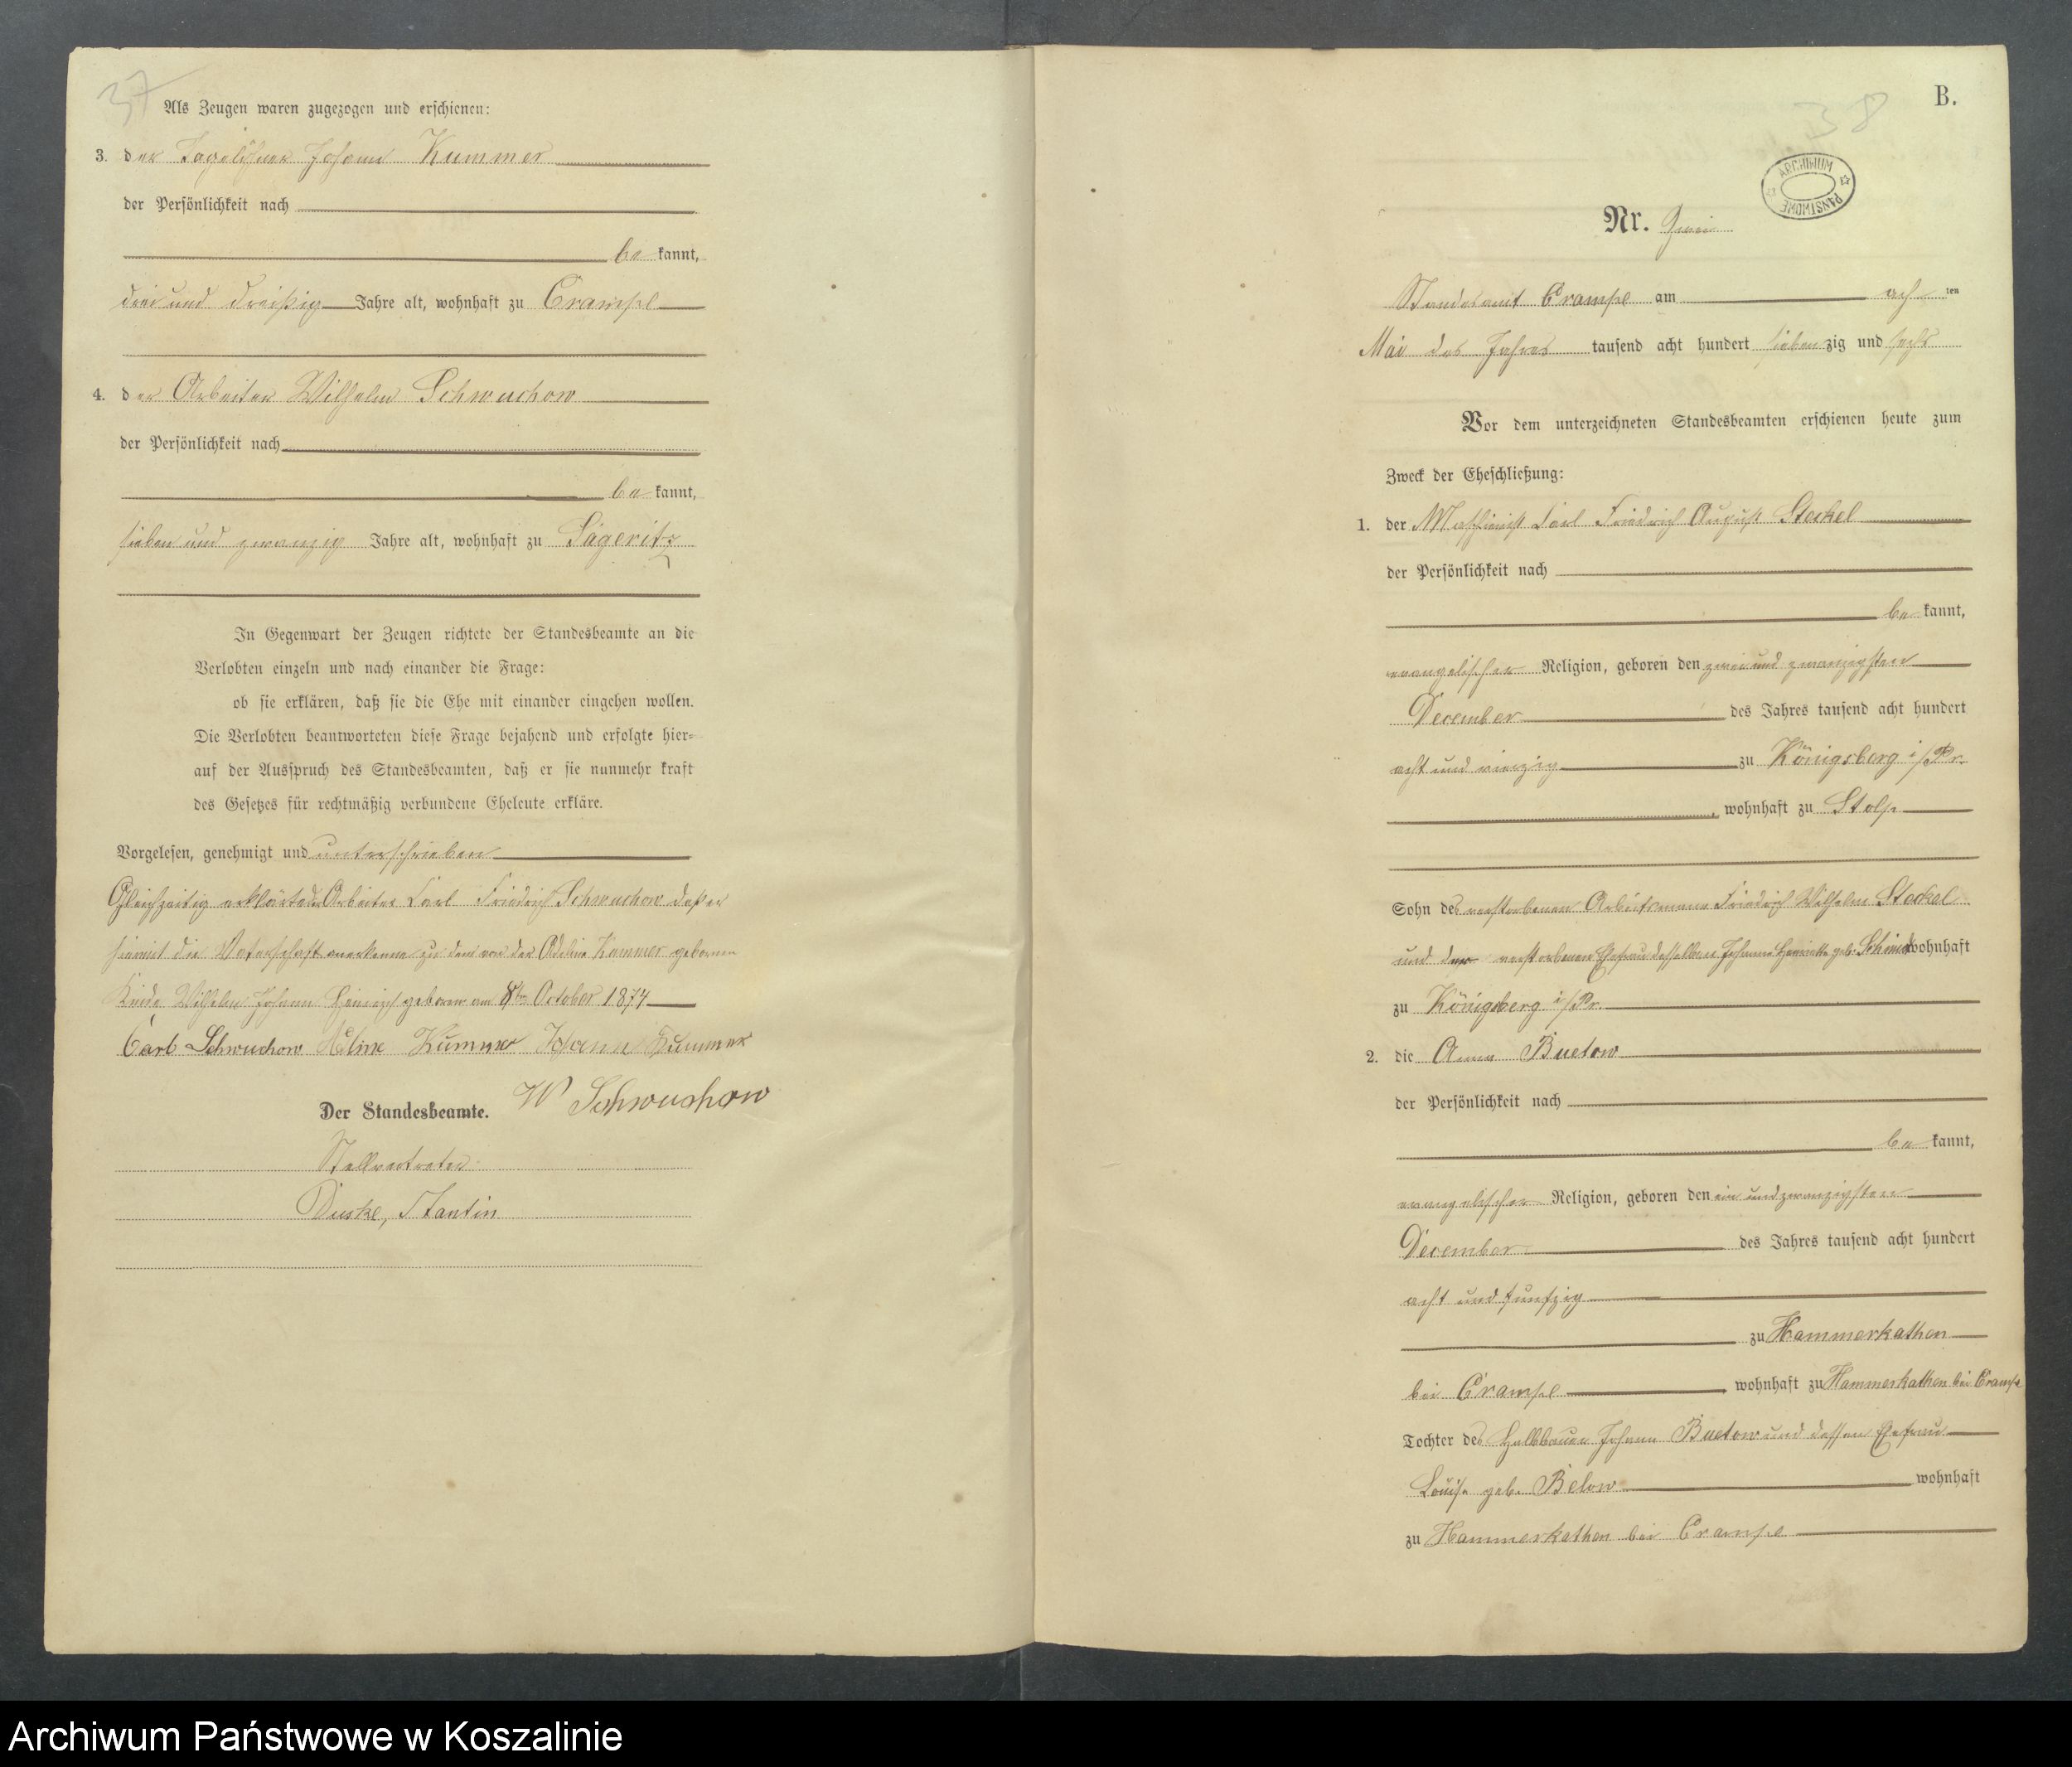 37
Als Zeugen waren zugezogen und erschienen:
3. der Tagelöhner Johann Kummer
der Persönlichkeit nach
be kannt,
drei und dreißig Jahre alt, wohnhaft zu Crampe
4. der Arbeiter Wilhelm Schwuchow
der Persönlichkeit nach
be kannt,
sieben und zwanzig Jahre alt, wohnhaft zu Sageritz
In Gegenwart der Zeugen richtete der Standesbeamte an die
Verlobten einzeln und nach einander die Frage:
ob sie erklären, daß sie die Ehe mit einander eingehen wollen.
Die Verlobten beantworteten diese Frage bejahend und erfolgte hier-
auf der Ausspruch des Standesbeamten, daß er sie nunmehr kraft
des Gesetzes für rechtmäßig verbundene Eheleute erkläre.
Vorgelesen, genehmigt und unterschrieben
Gleichzeitig erklärte der Arbeiter Carl Friedrich Schwuchow daß er
hiermit die Vaterschaft anerkenne zu dem von der Adeline Kummer gebornen
Kinde Wilhelm Johann Heinrich geboren am 8ten October 1874
Carl Schwuchow Kummer Johann Kummer
W Schwuchow
Der Standesbeamte.
Stellvertreter
Stantin
B.
38
ARCHIWUM PAŃSTWOWE
Nr. Zwei
Standesamt Crampe am ach ten
Mai des Jahres tausend acht hundert sieben zig und sechs
Vor dem unterzeichneten Standesbeamten erschienen heute zum
Zweck der Eheschließung:
1. der Maschinist Carl Friedrich August Stockel
der Persönlichkeit nach
be kannt,
evangelischer Religion, geboren den zwei und zwanzigsten
December des Jahres tausend acht hundert
acht und vierzig zu Königsberg i/Pr.
, wohnhaft zu Stolp
Sohn des verstorbenen Arbeitsmann Friedrich Wilhelm Stockel
und der verstorbenen Ehefrau desselben Johanna Henriette geb. wohnhaft
zu Königsberg i/Pr.
2. die Anna Buetow
der Persönlichkeit nach
be kannt,
evangelischer Religion, geboren den ein und zwanzigsten
December des Jahres tausend acht hundert
acht und funfzig
zu Hammerkathen
bei Crampe wohnhaft zu Hammerkathen bei Crampe
Tochter des Halbbauer Johann Buetow und dessen Ehefrau
Louise geb. Below wohnhaft
zu Hammerkathen bei Crampe
Archiwum Państwowe w Koszalinie